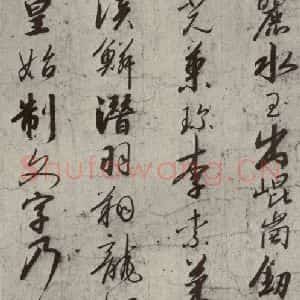 麗水玉出崐崗釼
光菓珍李柰菜
淡鱗潛羽翔龍
皇始制文字乃
Shufawang.CN